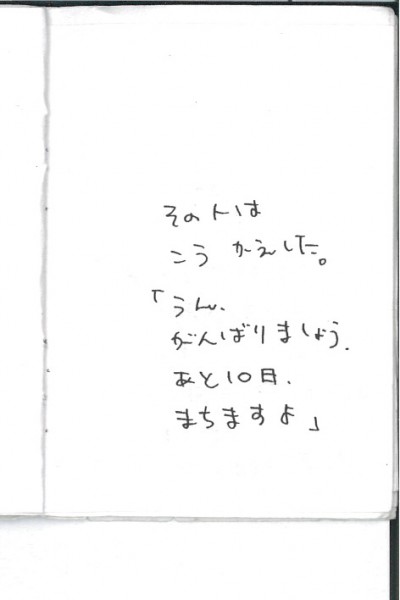 その人は
こう かえした。
「うん、
がんばりましょう。
あと10日、
まちますよ」